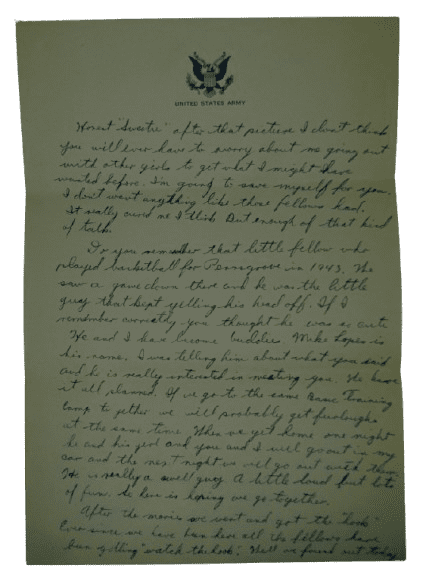 UNITED STATES ARMY
Honest "Sweetie" after that picture I don't think
you will ever have to worry about me going out
with other girls to get what I might have
wanted before. I'm going to save myself for you.
I don't want anything like those fellows had.
It really cured me I think. But enough of that kind
of talk.
Do you remember that little fellow who
played basketball for in 1943. We
saw a game down there and he was the little
guy that kept yelling his head off. If I
remember correctly you thought he was so cute
He and I has become buddies. Mike is
his name. I was telling him about what you said
and he is really interested in meeting you. We have
it all planned. If we go to the same Basic Training
Camp to gether we will probably get furloughs
at the same time. When we get home one night
he and his girl and you and I will go out in my
car and the next night we will go out with them.
He is really a swell guy. A little loud but lots
of fun. So here is hoping we go together.
After the movies we went and got the "hook"
Ever since we have been here all the fellows have
been yelling "watch the hook". Well we found out today